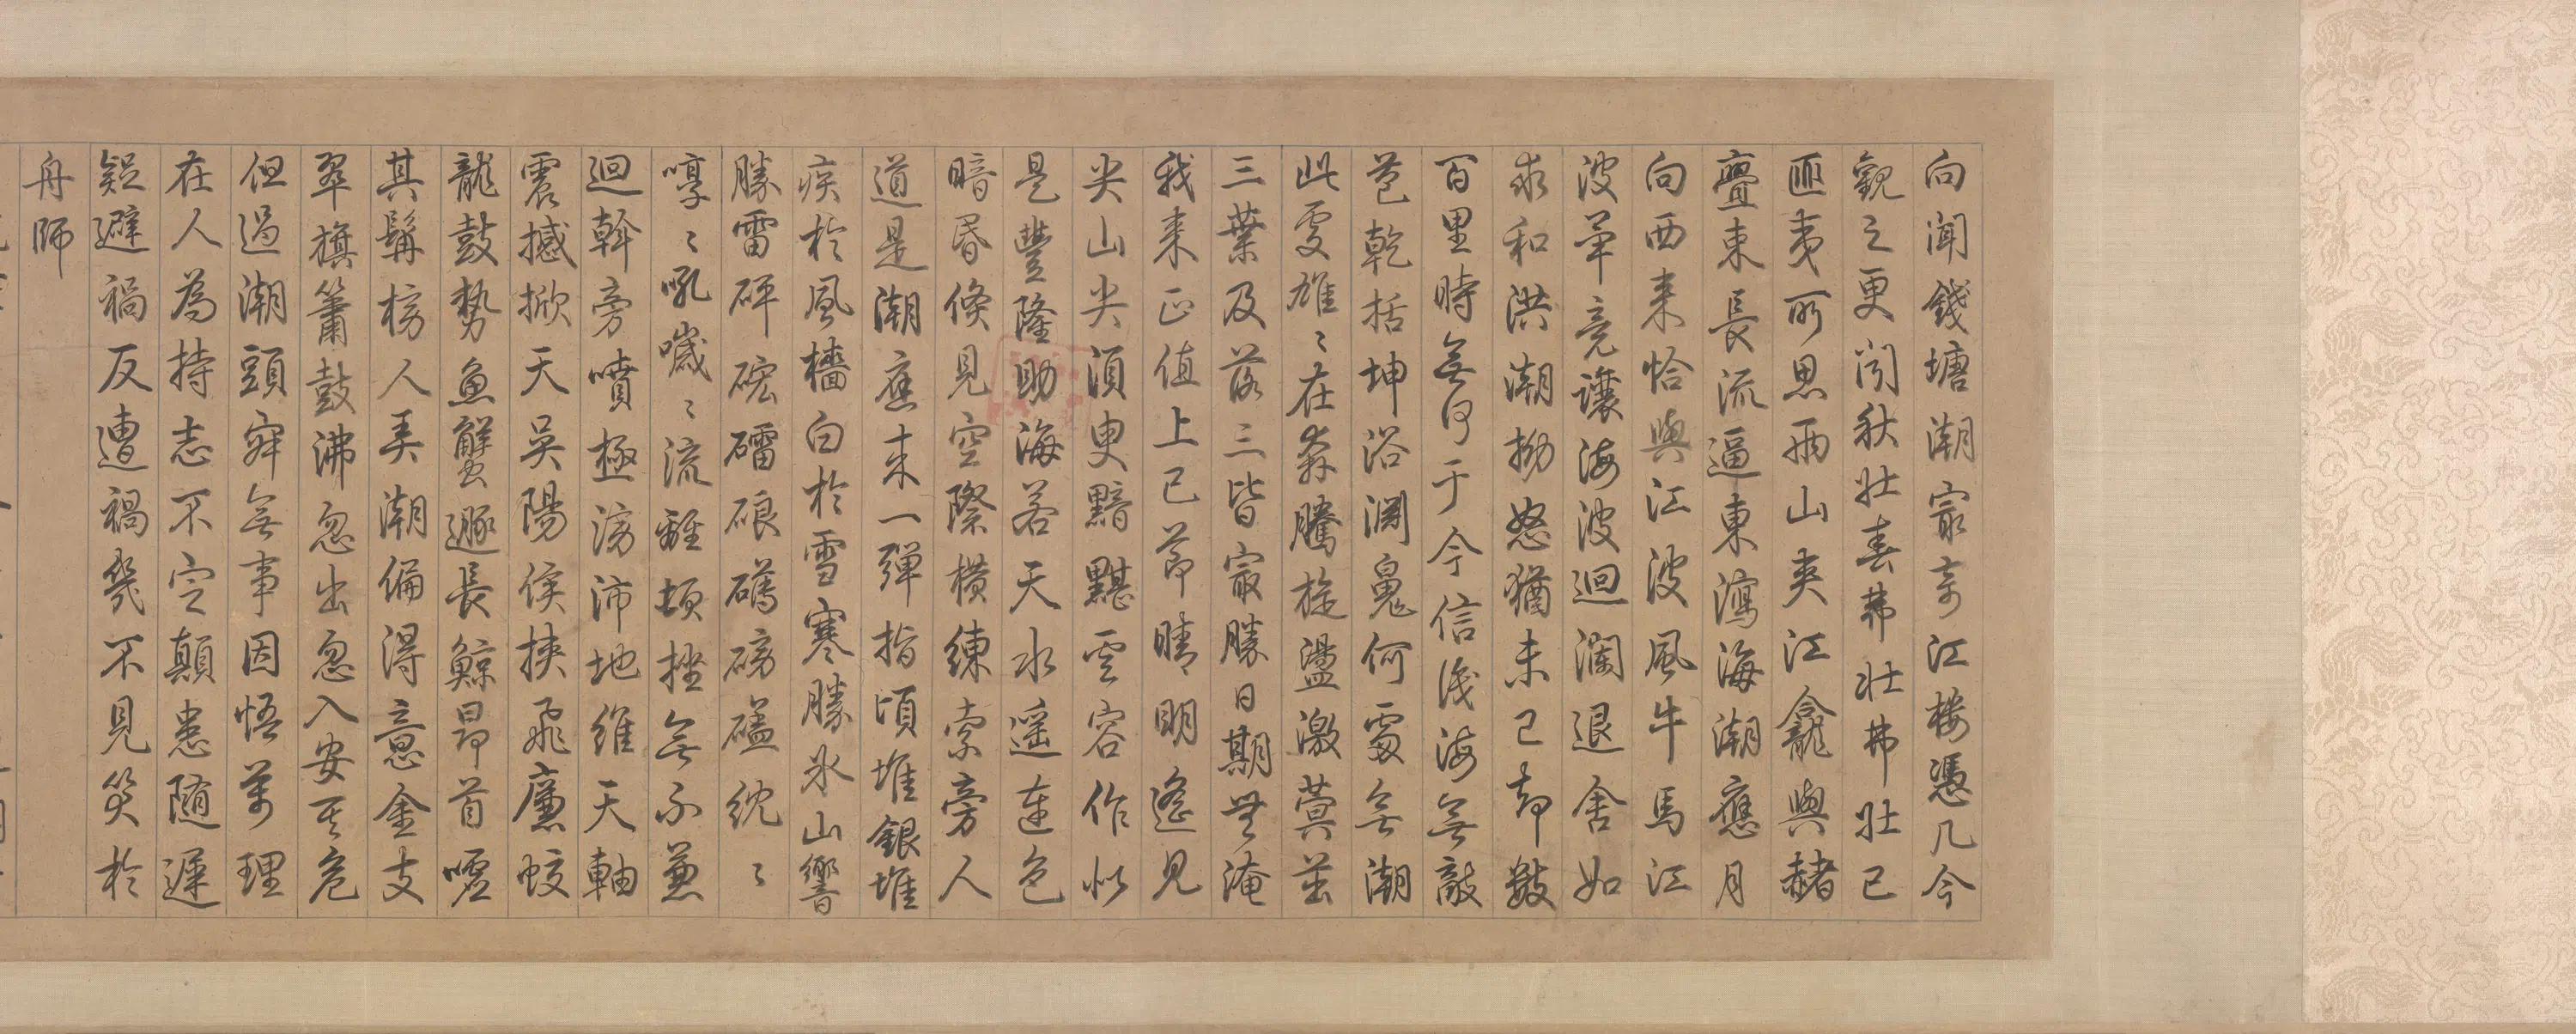 向聞錢塘潮最奇江樓憑几今
觀之更聞秋壯春弗壯弗壯已
匪夷所思兩山夾江龕與赭
亹束長流逼東瀉海潮應月
向西來恰與江波風牛馬江
波畢竟讓海波迴瀾退舍如
求和洪潮拗怒猶未已却數
百里時無何于今信淺海無敵
苞乾括坤浴淵鬼何處無潮
此處雄〻在奔騰旋盪激蓂莖
三葉及落三皆最勝日期無淹
我來正值上巳節晴明遙見
尖山尖須臾黯黮雲容作似
是豐隆助海若天水遥連色
暗昬倏見空際橫練索旁人
道是潮應來一彈指頃堆銀堆
疾於風檣白於雪寒勝氷山響
勝雷砰硡礌硠礚磅礚繞〻
嘷〻吼噦〻流離頓挫無不兼
迴斡旁噴極滂沛地維天軸
震撼掀天吳陽侯挾飛廉蛟
龍鼓勢魚蟹遯長鯨昂首噓
其髯榜人弄潮偏得意金支
翠旗簫鼓沸忽出忽入安其危
但過潮頭寂無事因悟萬理
在人為持志不定顛患随遲
疑避禍反遭禍幾不見笑於
舟師